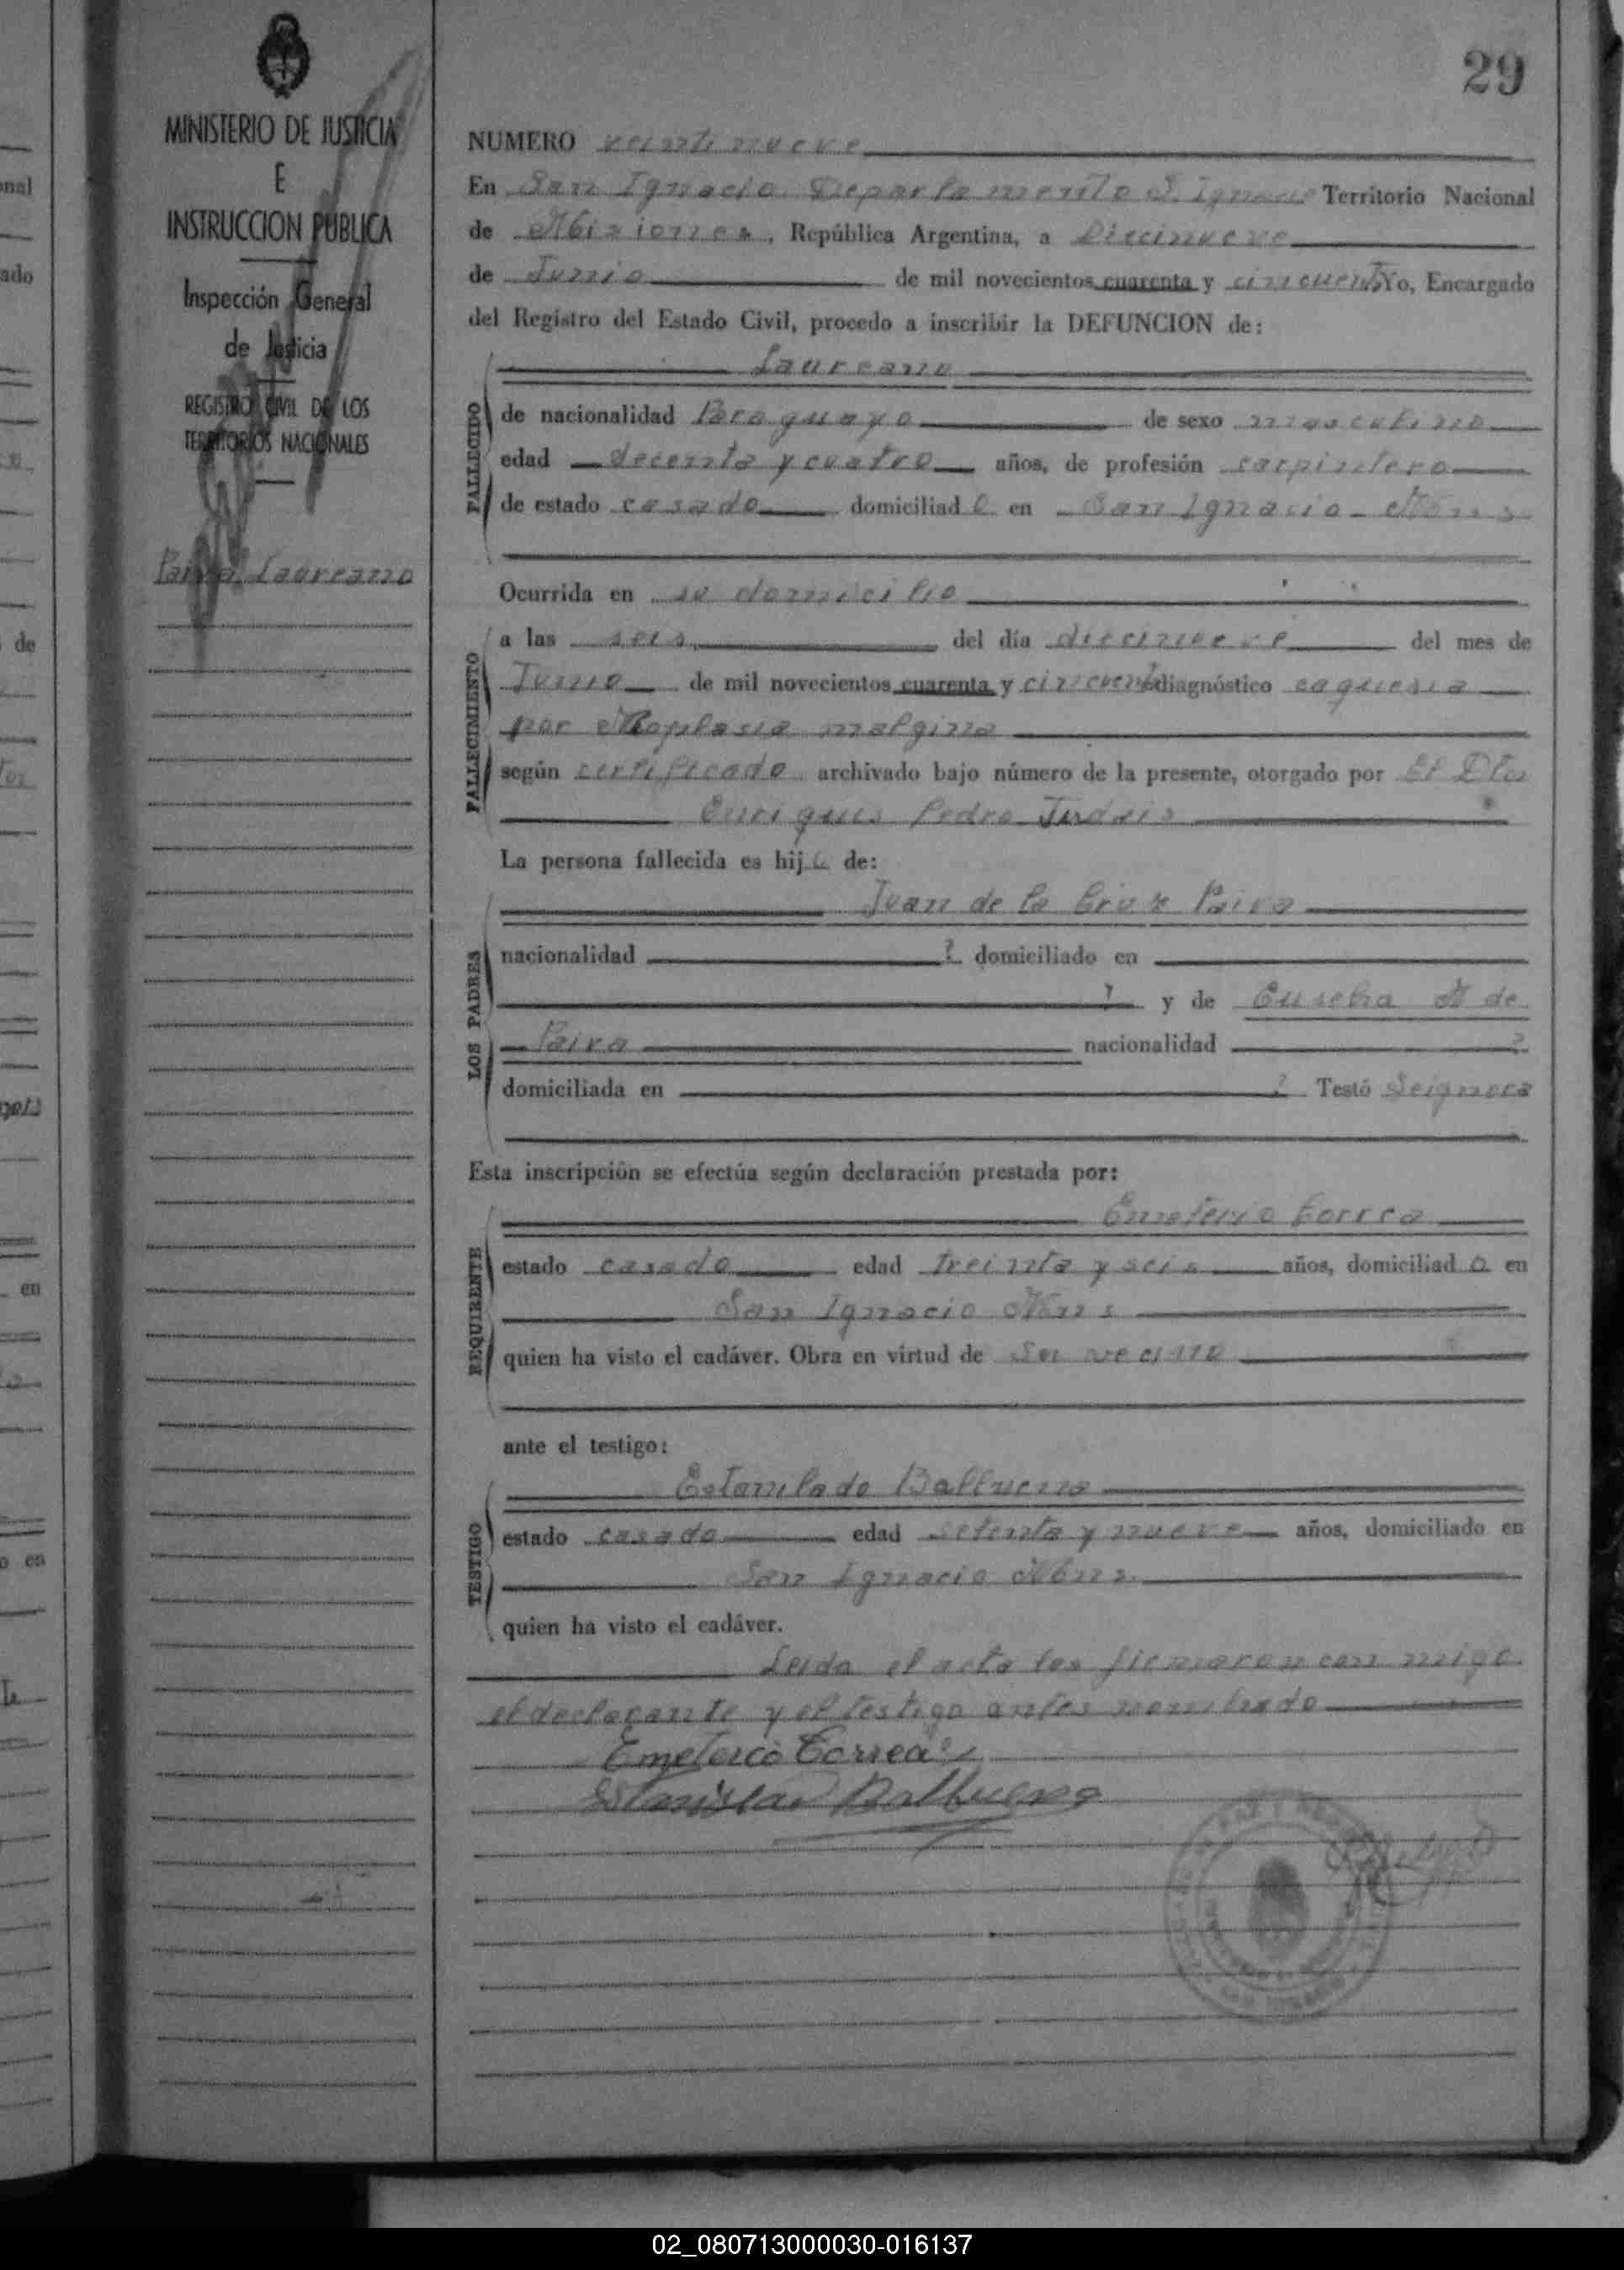 29
MINISTERIO DE JUSTICIA
E
INSTRUCCION PUBLICA
Inspección General
de Justicia
REGISTRO CIVIL DE LOS
TERRITORIOS NACIONALES
Paiva Laureano
NUMERO veintinueve
En San Ignacio Departamento S. Ignacio Territorio Nacional
de Misiones, República Argentina, a Diecinueve
de Junio de mil novecientos cuarenta y cincuenta Yo, Encargado
del Registro del Estado Civil, procedo a inscribir la DEFUNCION de:
Laureano
FALLECIDO
de nacionalidad Paraguayo de sexo masculino
edad decenta y cuatro años, de profesión carpintero
de estado casado domiciliado en San Ignacio Mnes
Ocurrida en su domicilio
FALLECIMIENTO
a las seis del día diecinueve del mes de
Junio de mil novecientos cuarenta y cincuenta diagnóstico caquesia
por malgina
según certificado archivado bajo número de la presente, otorgado por El
Pedro
La persona fallecida es hijo de:
LOS PADRES
Juan de la Cruz Paiva
nacionalidad ? domiciliado en
? y de Eusebia de
Paiva nacionalidad ?
domiciliada en ? Testó Seignora
Esta inscripción se efectúa según declaración prestada por:
REQUIRENTE
Emeterio Correa
estado casado edad treinta y seis años, domiciliado en
San Ignacio Mnes
quien ha visto el cadáver. Obra en virtud de Ser vecino
ante el testigo:
TESTIGO
Estanilado Balbuena
estado casado edad setenta y nueve años, domiciliado en
San Ignacio Mnes.
quien ha visto el cadáver.
Leida el acta los firmaron con migo
el declarante y el testigo antes nombrado
Emeterio Correa
Stanislao Balbuena
02_080713000030-016137